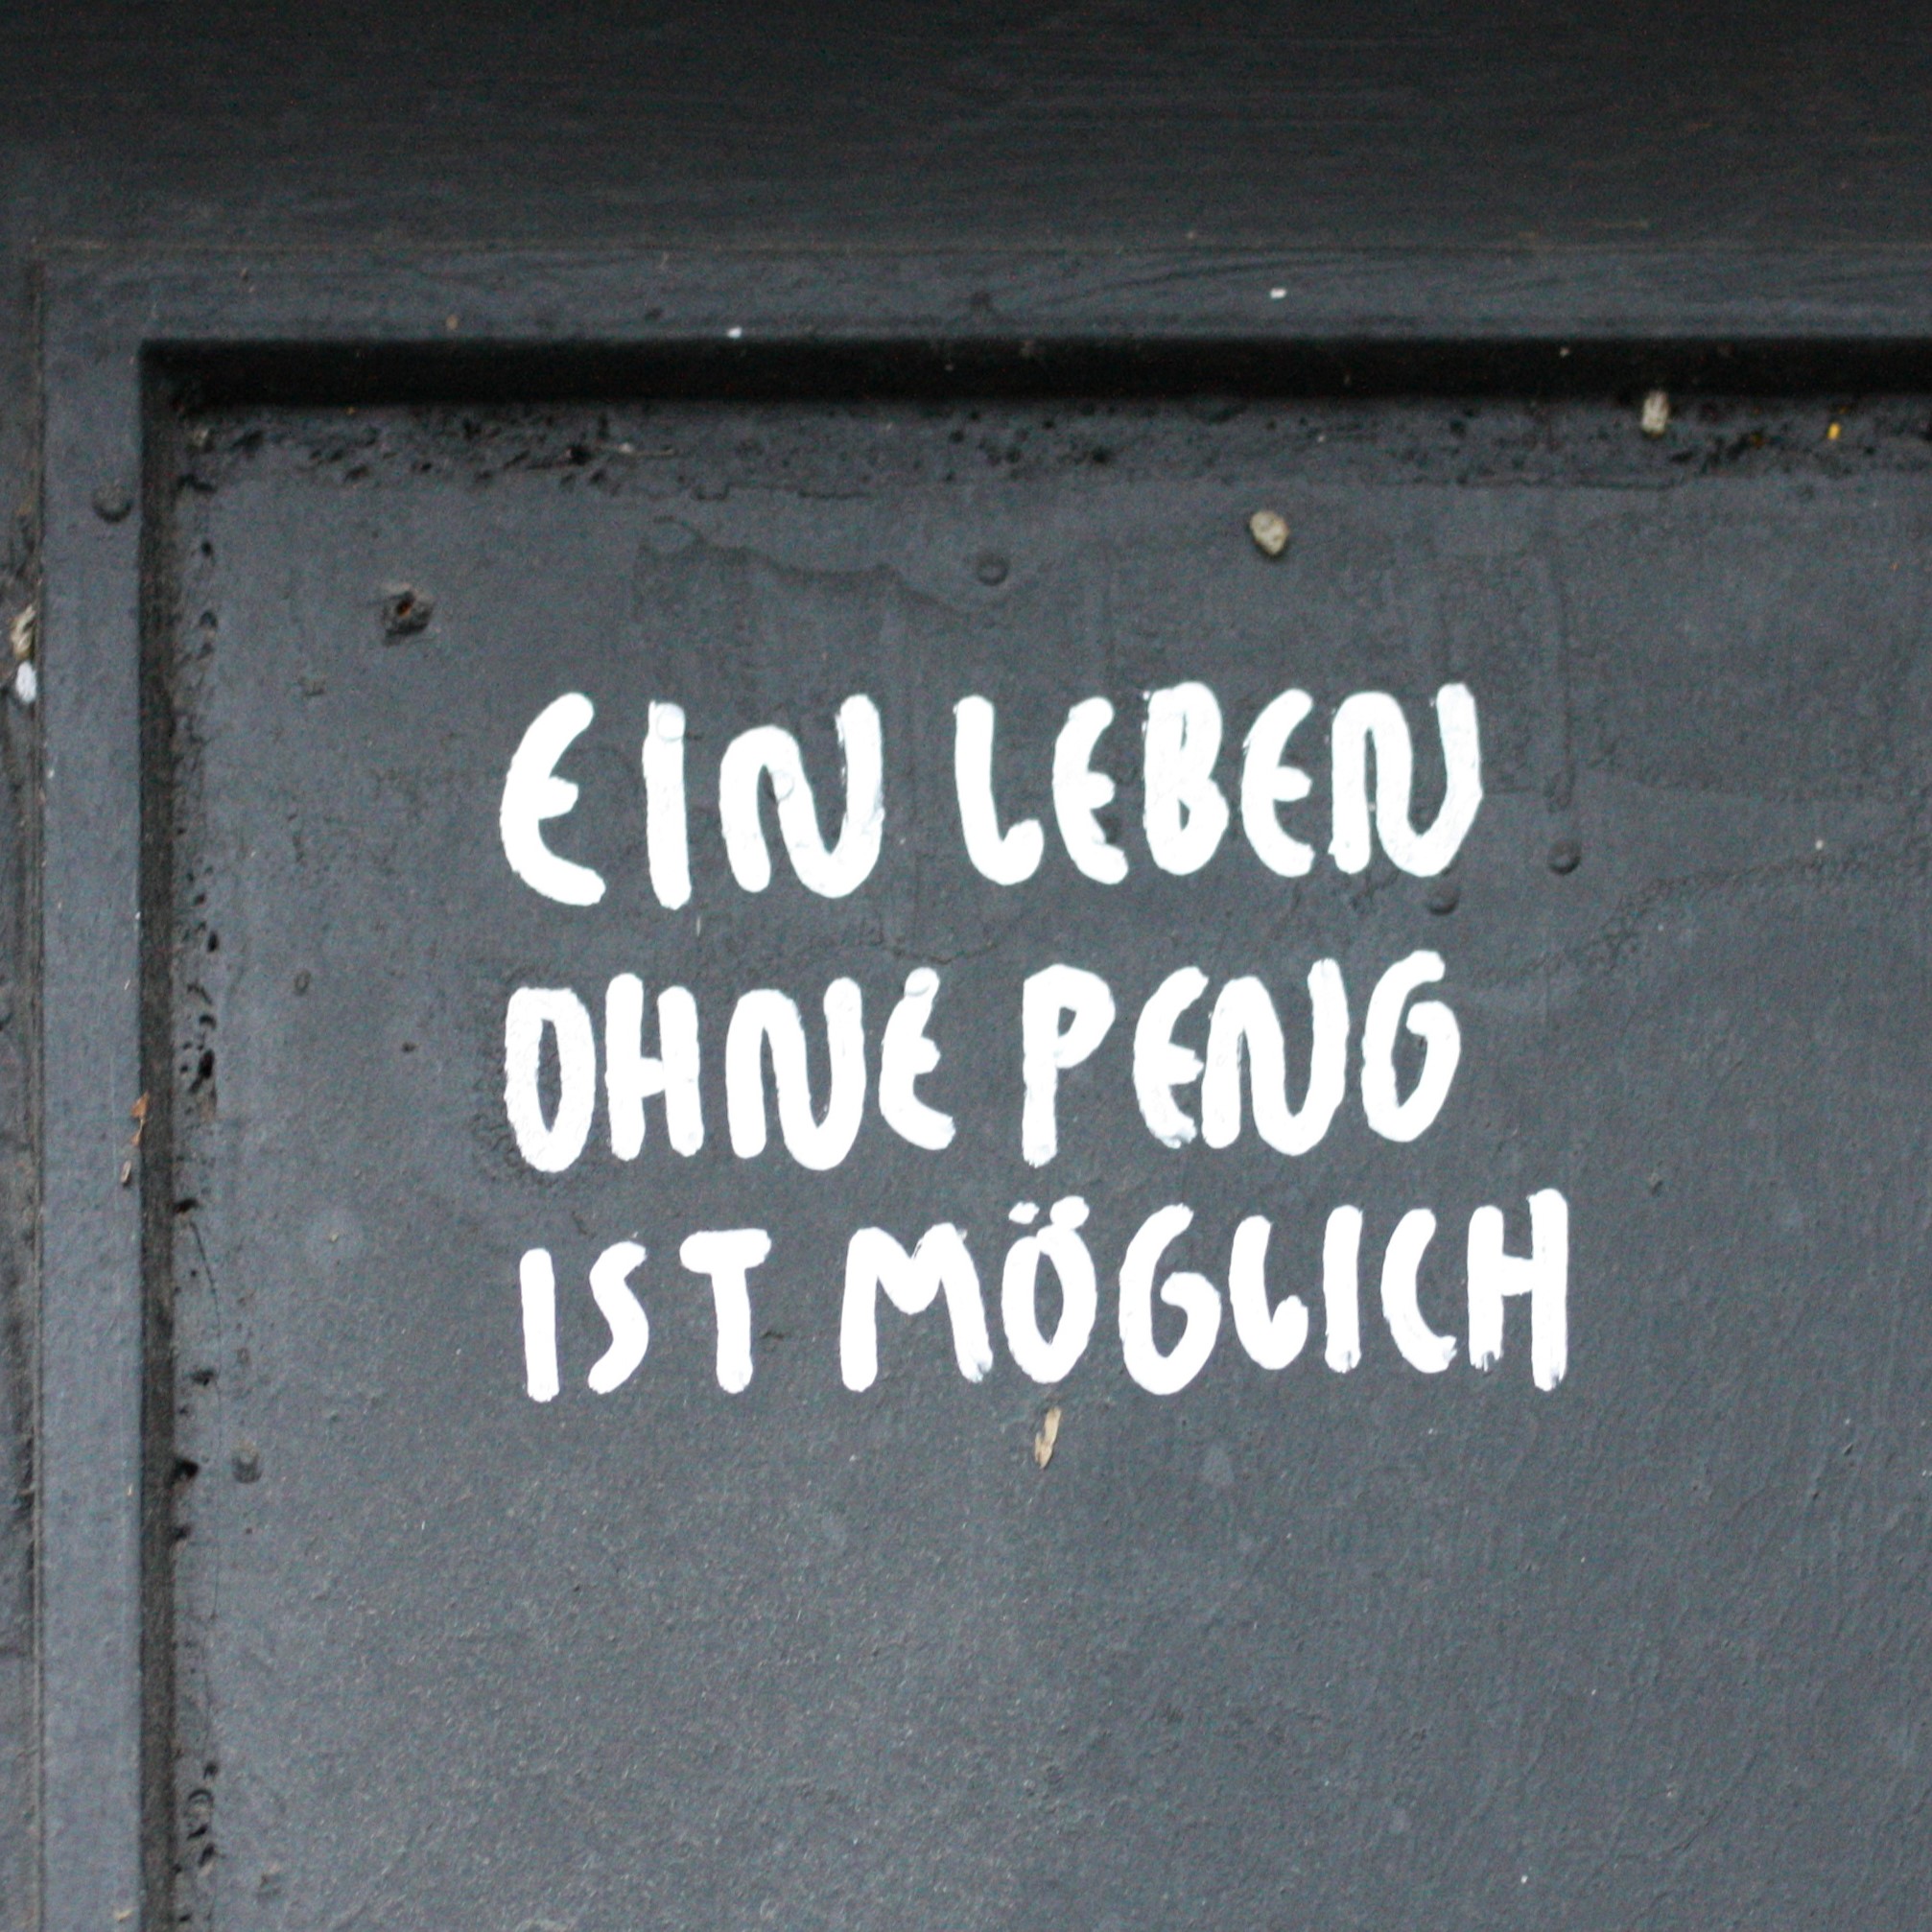 EIN LEBEN
OHNE PENG
IST MÖGLICH